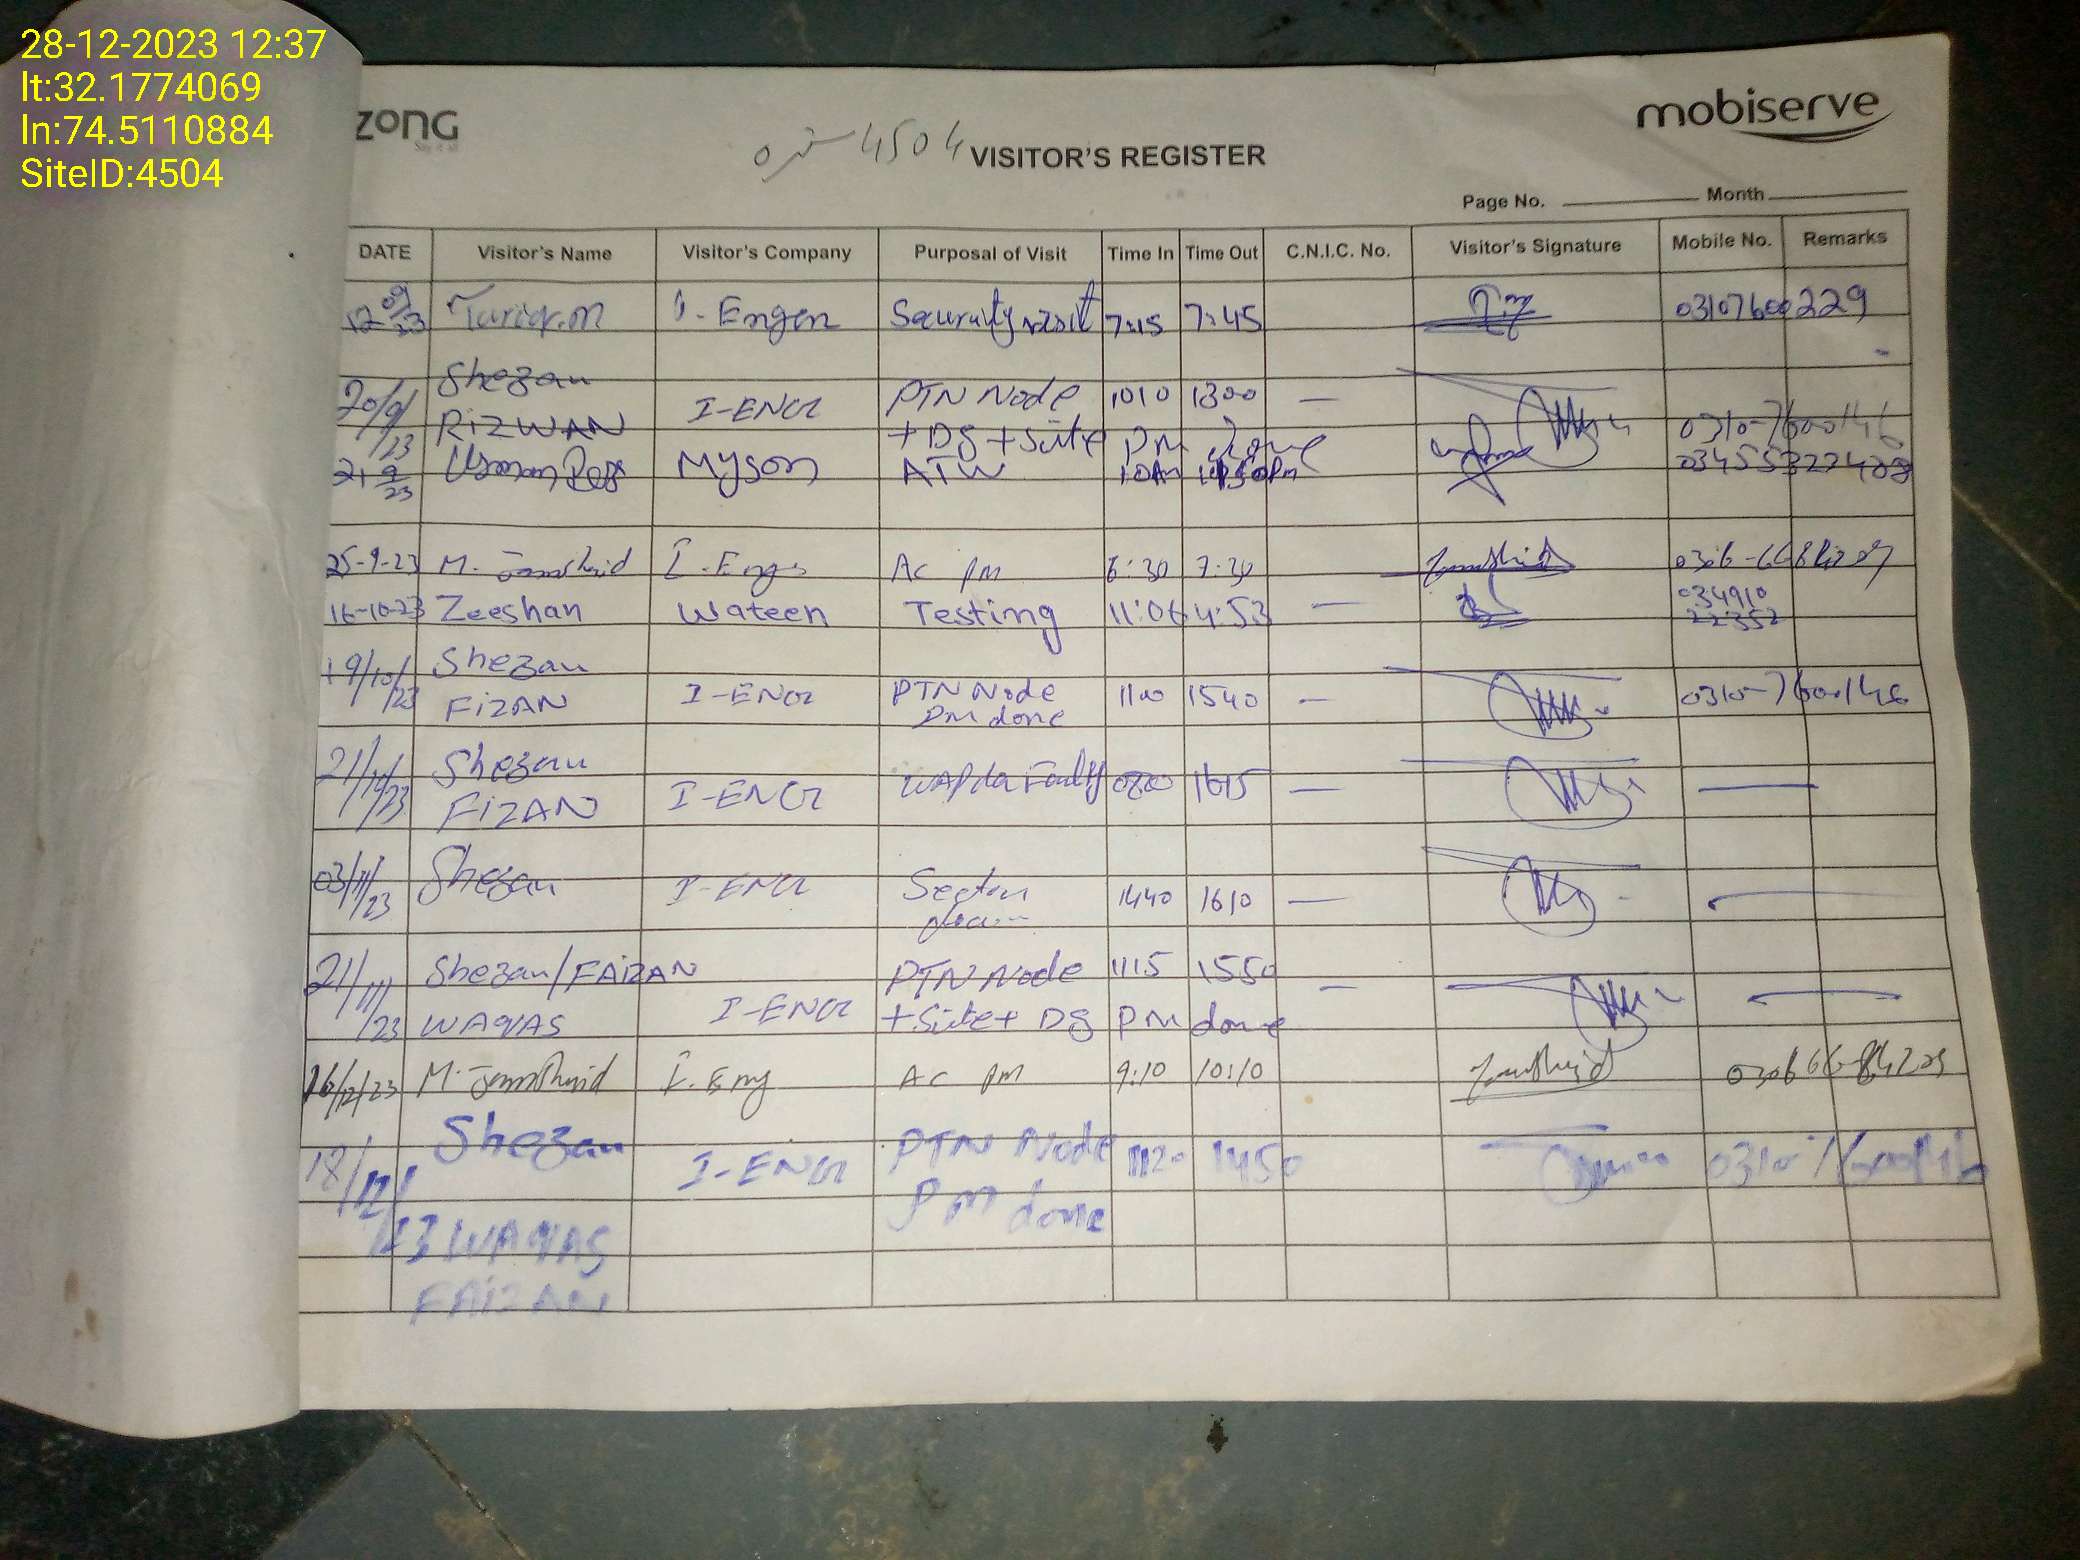 28-12-2023 12:37
lt:32.1774069
ln:74.5110884
SiteID:4504
zong
mobiserve
4504 VISITOR'S REGISTER
Page No. Month
DATE Visitor's Name Visitor's Company Purposal of Visit Time In Time Out C.N.I.C. No. Visitor's Signature Mobile No. Remarks
12 09/23 Tariq.m I-Engen Security visit 7:15 7:45 03107600229
20/9/23 Shezan I-ENGR PTN Node 1010 1300 —
RIZWAN + DG + Site PM done 0310-7600146
21 9/23 Usman Myson ATW 10Am
25-9-23 M. Jamshaid I.Eng AC pm 6:30 7:30 Jamshaid
16-10-23 Zeeshan Wateen Testing 11:06 4:53 — 034910
22352
19/10/23 Shezan
FiZAN I-ENGR PTN Node 1100 1540 — 0310-7600146
PM done
21/10/23 Shezan WAPda Faulty 0800 1615 —
FiZAN I-ENGR
03/11/23 Shezan I-ENGR 1440 1610 —
21/11/23 Shezan/FAiZAN PTN Node 1115 1550
WAQAS I-ENGR + Site + DG PM done
16/12/23 M. Jamshaid I.Eng AC pm 9:10 10:10 Jamshaid
18/12/23 Shezan I-ENGR PTN Node 1120 1450 0310-7600146
WAQAS PM done
FAIZAN